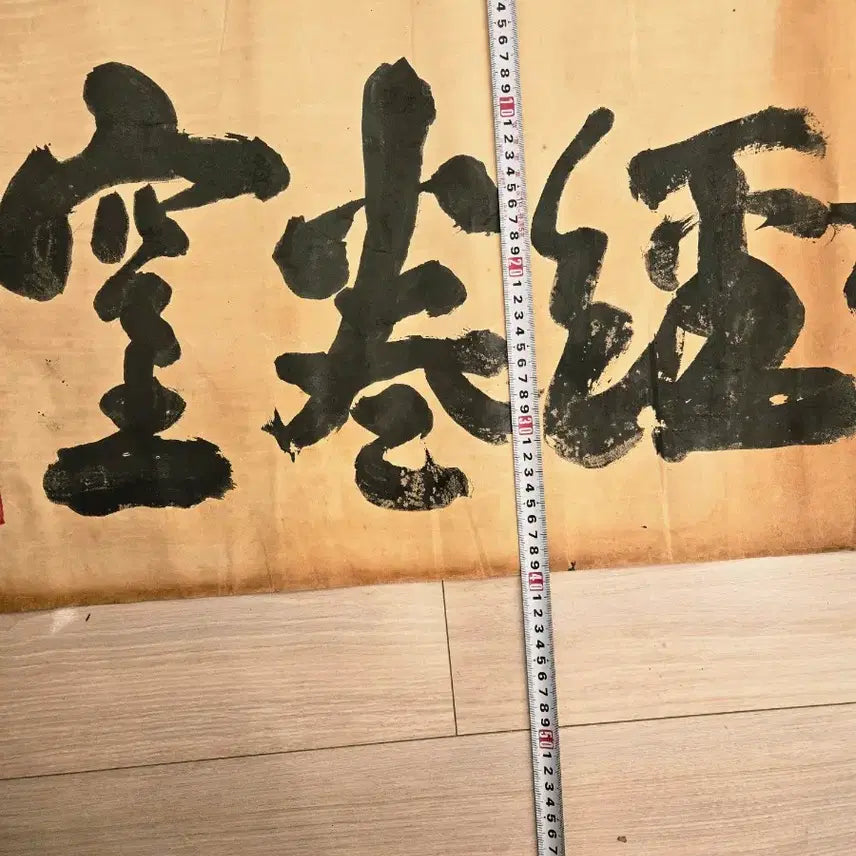 經卷室
4 5 6 7 8 9 10 1 2 3 4 5 6 7 8 9 20 1 2 3 4 5 6 7 8 9 30 1 2 3 4 5 6 7 8 9 40 1 2 3 4 5 6 7 8 9 50 1 2 3 4 5 6 7